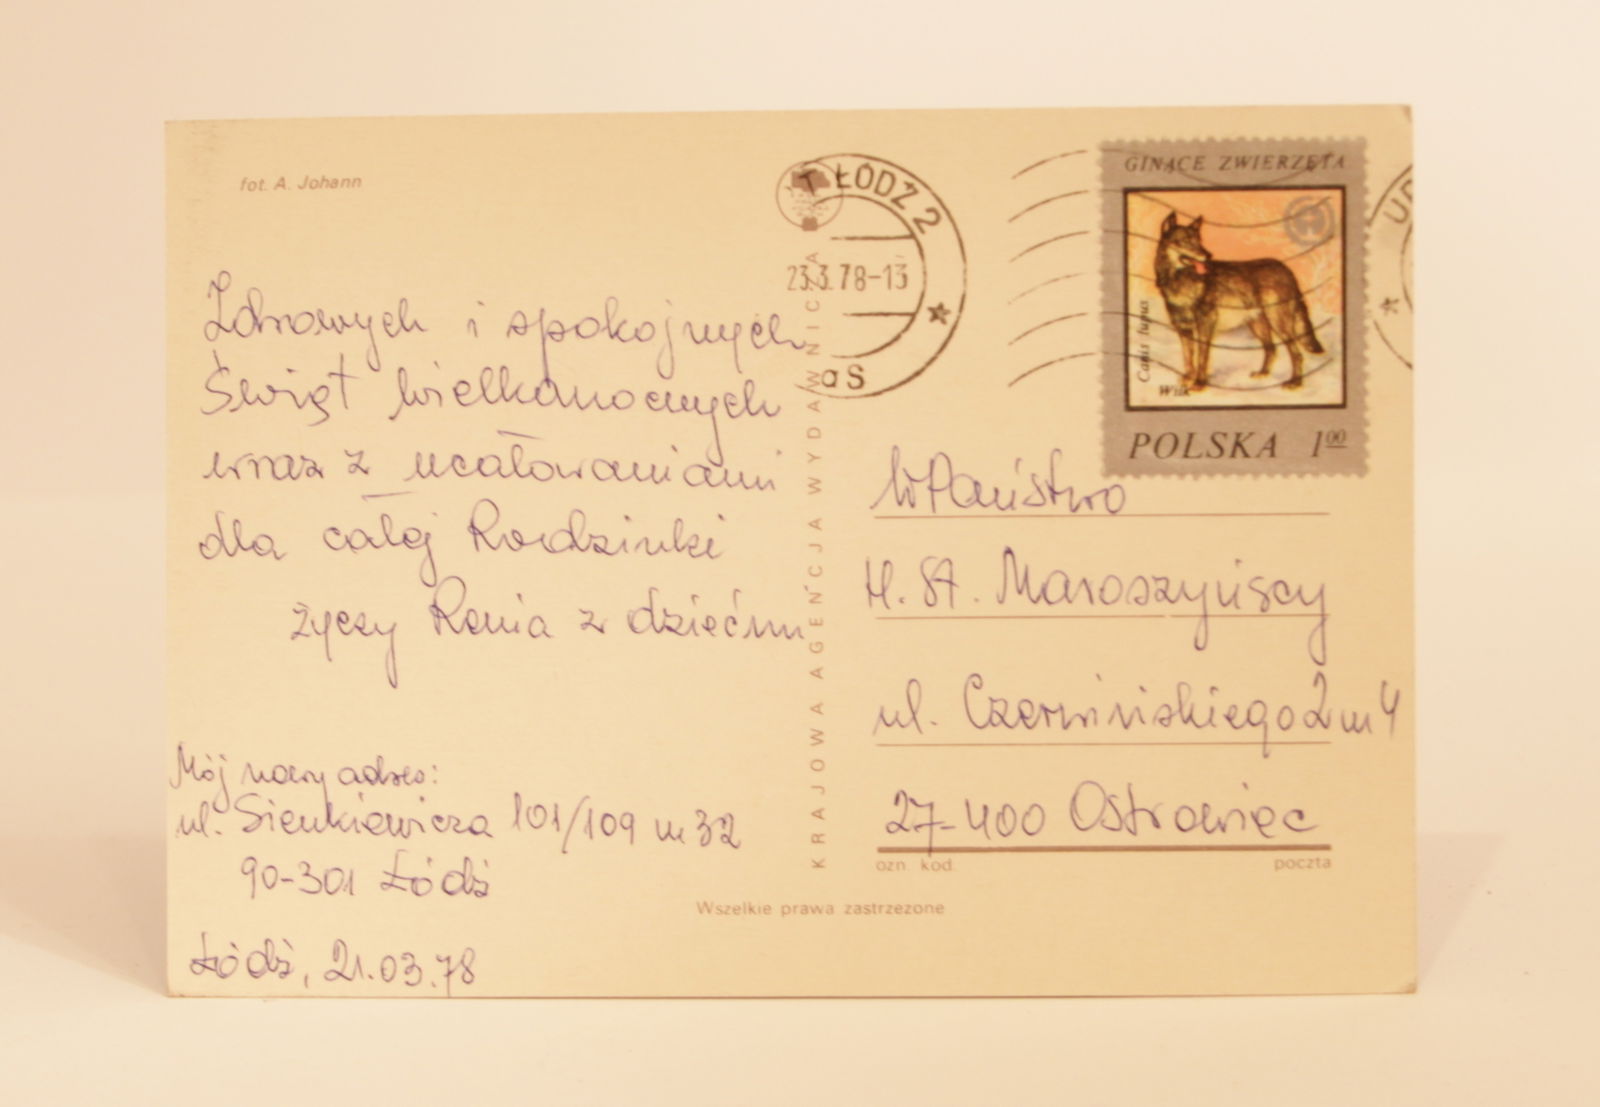 fot. A. Johann
Zdrowych i spokojnych
Świąt wielkanocnych
wraz z ucałowaniami
dla całej Rodzinki
życzy Renia z dziećmi
Mój nowy adres:
ul. Sienkiewicza 101/109 m 32
90-301 Łódź
Łódź, 21.03.78
KRAJOWA AGENCJA WYDAWNICZA
Wszelkie prawa zastrzeżone
ŁÓDŹ 2
23.3.78-13
aS
GINĄCE ZWIERZĘTA
Canis lupus
Wilk
POLSKA 100
WPaństwo
H. St. Maroszyńscy
ul. Czerwińskiego 2 m 4
27-400 Ostrowiec
ozn. kod. poczta